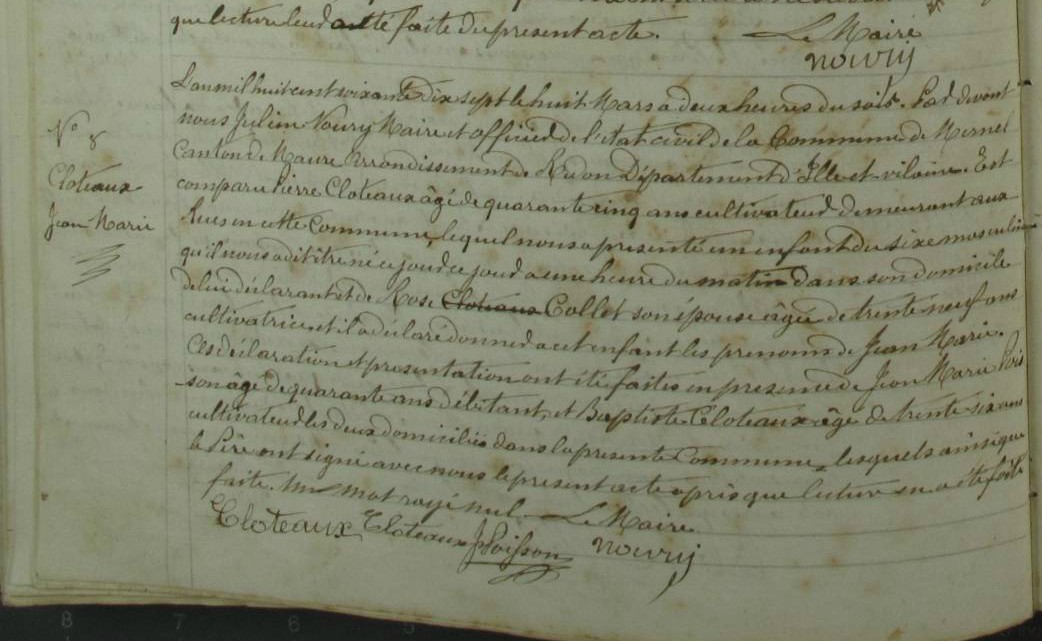 que lecture leur a été faite du present acte. Le Maire
nourij
L'an mil huit cent soixante dix sept le huit Mars a deux heures du soir. Par devant
N° 8
nous Julien Noury Maire et officier de l'état civil de la Commune de Mernel
Canton de Maure Arrondissement de Redon Département d'Ille et vilaine. Est
Cloteaux
comparu Pierre Cloteaux âgé de quarante cinq ans cultivateur demeurant aux
Jean Marie
Rues en cette Commune, lequel nous a presenté un enfant du sixe masculin
qu'il nous a dit être né ce jour ce jour a une heure du matin dans son domicile
de lui déclarant et de Rose Cloteaux Collet son épouse âgée de trente neuf ans
cultivatrice, et il a declaré donner a cet enfant les prenoms de Jean Marie.
Ces déclaration et presentation ont été faites en presence de Jean Marie Pois
-son âgé de quarante ans débitant, et Baptiste Cloteaux âgé de trente six ans
cultivateur les deux domiciliés dans la presente Commune, lesquels ainsi que
le Père ont signé avec nous le present acte apris que lecture en a été faite
faite. Un mot rayé nul. Le Maire
Cloteaux Cloteaux JPoisson nourij